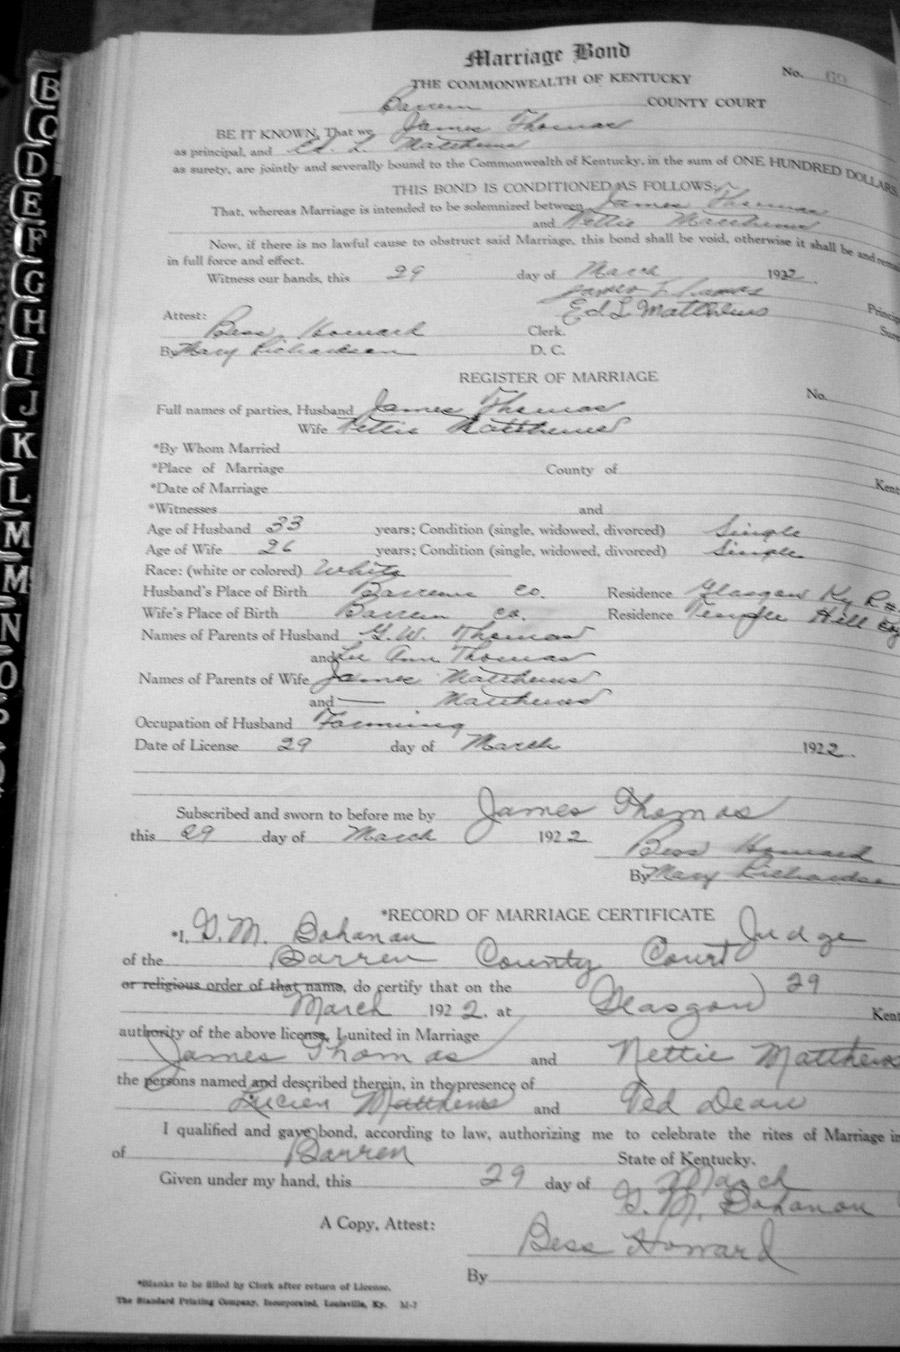 B
C
D
E
F
G
H
I
J
K
L
M
M
N
O
Marriage Bond
No. 69
THE COMMONWEALTH OF KENTUCKY
Barren COUNTY COURT
BE IT KNOWN, That we James Thomas
as principal, and Ed. L. Matthews
as surety, are jointly and severally bound to the Commonwealth of Kentucky, in the sum of ONE HUNDRED DOLLARS
THIS BOND IS CONDITIONED AS FOLLOWS:
That, whereas Marriage is intended to be solemnized between James Thomas
and Nettie Matthews
Now, if there is no lawful cause to obstruct said Marriage, this bond shall be void, otherwise it shall be and remain
in full force and effect.
Witness our hands, this 29 day of March 1922.
James Thomas Princip
Ed L Matthews Sure
Attest:
Bess Howard Clerk.
By Mary Richardson D. C.
REGISTER OF MARRIAGE
No.
Full names of parties, Husband James Thomas
Wife Nettie Matthews
*By Whom Married
*Place of Marriage County of Kent
*Date of Marriage
*Witnesses and
Age of Husband 33 years; Condition (single, widowed, divorced) Single
Age of Wife 26 years; Condition (single, widowed, divorced) Single
Race: (white or colored) White
Husband's Place of Birth Barren Co. Residence Glasgow Ky R#
Wife's Place of Birth Barren Co. Residence Temple Hill Ky
Names of Parents of Husband G.W. Thomas
and Lu Ann Thomas
Names of Parents of Wife James Matthews
and —— Matthews
Occupation of Husband Farming
Date of License 29 day of March 1922.
Subscribed and sworn to before me by James Thomas
this 29 day of March 1922
Bess Howard
By Mary Richardson
*RECORD OF MARRIAGE CERTIFICATE
*I, G.M. Bohanan Judge
of the Barren County Court
or religious order of that name, do certify that on the 29
March 1922, at Glasgow Kent
authority of the above license, I united in Marriage
James Thomas and Nettie Matthews
the persons named and described therein, in the presence of
Lucien Matthews and Ted Dean
I qualified and gave bond, according to law, authorizing me to celebrate the rites of Marriage in
of Barren State of Kentucky.
Given under my hand, this 29 day of March
G. M. Bohanon
A Copy, Attest:
Bess Howard
By
*Blanks to be filled by Clerk after return of License.
The Standard Printing Company, Incorporated, Louisville, Ky. M-7